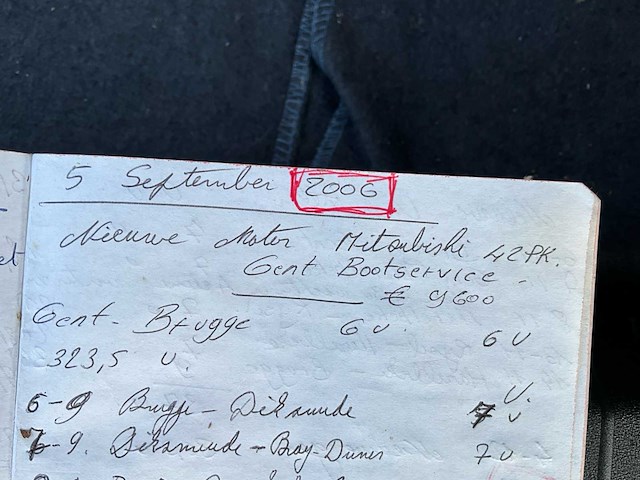 5 September 2006
Nieuwe Motor Mitsubishi 42PK.
Gent Bootservice -
€ 9600
Gent - Brugge 6 u. 6 u
323,5 u.
u.
6-9 Brugge - Diksmuide 7 u
7-9. Diksmuide - Bray-Dunes 7 u